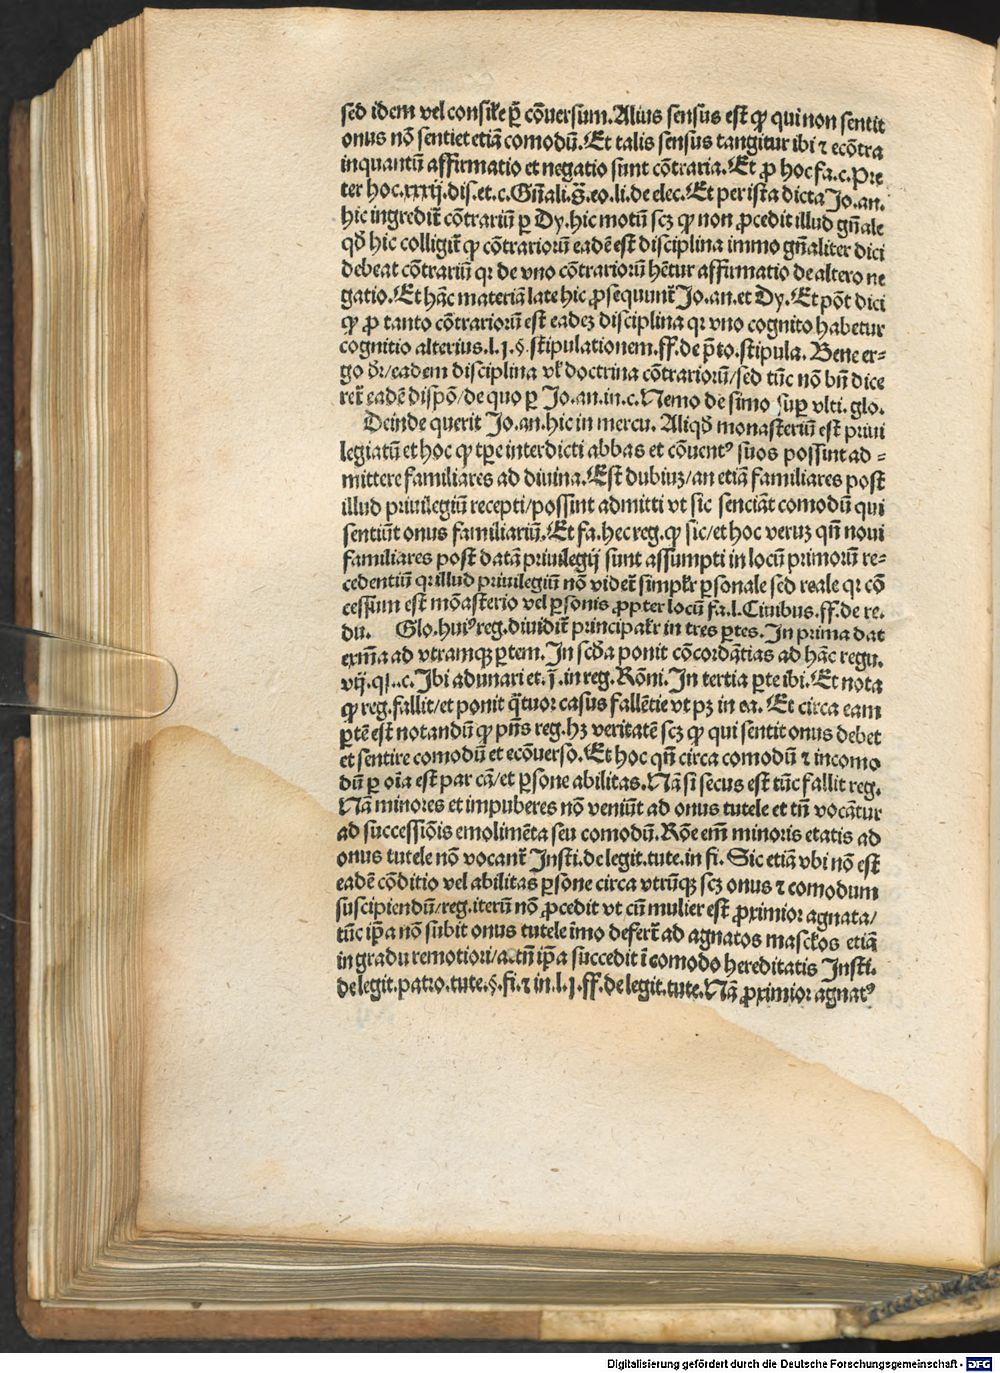 sed idem vel consił'e ꝑ̄ cōuersum. Alius sensus est ꝙ qui non sentit
onus nō sentiet etiā comodū. Et talis sensus tangitur ibi ⁊ ecōtra
inquantū affirmatio et negatio sunt cōtraria. Et ꝓ hoc fa. c. Pre
ter hoc. xxxij. dis. et. c. Gn̄ali. §. eo. li. de elec. Et per ista dicta Jo. an.
hic ingredit̄ cōtrariū ꝑ Dy. hic motū scꝫ ꝙ non ꝓcedit illud gn̄ale
qđ hic colligit̄ ꝙ cōtrariorū eadē est disciplina immo gn̄aliter dici
debeat cōtrariū qꝛ de vno cōtrariorū hētur affirmatio de altero ne
gatio. Et hāc materiā late hic ꝓsequunt̄ Jo. an. et Dy. Et pōt dici
ꝙ ꝓ tanto cōtrariorū est eadeꝫ disciplina qꝛ vno cognito habetur
cognitio alterius. l. j. §. stipulationem. ff. de p̄to. stipula. Bene er-
go dr̄/eadem disciplina vł doctrina cōtrariorū/sed tūc nō bn̄ dice
ret̄ eadē dispō/de quo ꝑ Jo. an. in. c. Nemo de simo suꝑ vlti. glo.
Deinde querit Jo. an. hic in mercu. Aliqđ monasteriū est priui
legiatū et hoc ꝙ tꝑe interdicti abbas et cōuentꝰ suos possint ad-
mittere familiares ad diuina. Est dubiuꝫ/an etiā familiares post
illud priuilegiū recepti/possint admitti vt sic senciāt comodū qui
sentiūt onus familiariū. Et fa. hec reg. ꝙ sic/et hoc veruꝫ qn̄ noui
familiares post datā priuilegij sunt assumpti in locū primorū re-
cedentiū qꝛ illud priuilegiū nō videt̄ simplr̄ ꝑsonale sed reale qꝛ cō
cessum est mōasterio vel ꝑsonis ꝓpter locū fa. l. Ciuibus. ff. de re.
du. Glo. huiꝰ reg. diuidit̄ principalr̄ in tres ꝑtes. In prima dat
exm̄a ad vtramqꝫ ꝑtem. In scđa ponit cōcordātias ad hāc regu.
vij. q. j. c. Ibi adunari et. j̄. in reg. Rōni. In tertia ꝑte ibi. Et nota
ꝙ reg. fallit/et ponit q̄tuor casus fallētie vt pꝫ in ea. Et circa eam
ꝑtē est notandū ꝙ pn̄s reg. hꝫ veritatē scꝫ ꝙ qui sentit onus debet
et sentire comodū et ecōuerso. Et hoc qn̄ circa comodū ⁊ incomo
dū ꝑ oīa est par cā/et ꝑsone abilitas. Nā si secus est tūc fallit reg.
Nā minores et impuberes nō veniūt ad onus tutele et tn̄ vocātur
ad successiōis emolimēta seu comodū. Rōe em̄ minoris etatis ad
onus tutele nō vocant̄ Insti. de legit. tute. in fi. Sic etiā vbi nō est
eadē cōditio vel abilitas ꝑsone circa vtrūqꝫ scꝫ onus ⁊ comodum
suscipiendū/reg. iterū nō ꝓcedit vt cū mulier est ꝓximior agnata/
tūc ip̄a nō subit onus tutele imo defert̄ ad agnatos masclos etiā
in gradu remotiori/a. tn̄ ip̄a succedit ī comodo hereditatis Insti.
de legit. patro. tute. §. fi. ⁊ in. l. j. ff. de legit. tute. Nā ꝓximior agnatꝰ
Digitalisierung gefördert durch die Deutsche Forschungsgemeinschaft - DFG